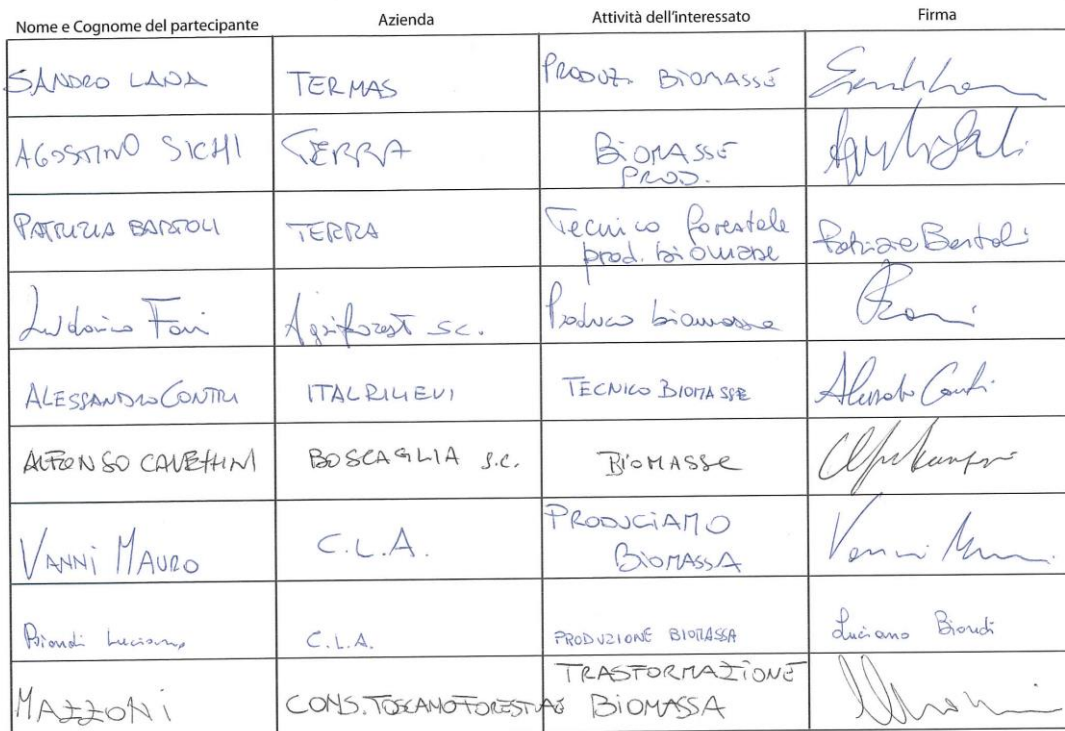 Nome e Cognome del partecipante Azienda Attività dell'interessato Firma
SANDRO LANA TERMAS PRODUZ. BIOMASSE
AGOSTINO SICHI TERRA BIOMASSE
PROD.
PATRIZIA BARTOLI TERRA Tecnico forestale Patrizia Bartoli
prod. biomasse
Ludovico Agriforest s.c. Produco biomasse
ALESSANDRO CONTRI ITALRILIEVI TECNICO BIOMASSE
ALFONSO BOSCAGLIA s.c. BIOMASSE
VANNI MAURO C.L.A. PRODUCIAMO
BIOMASSA Vanni
Biondi Luciano C.L.A. PRODUZIONE BIOMASSA Luciano Biondi
MAZZONI CONS. TOSCANO FORESTALE TRASFORMAZIONE
BIOMASSA